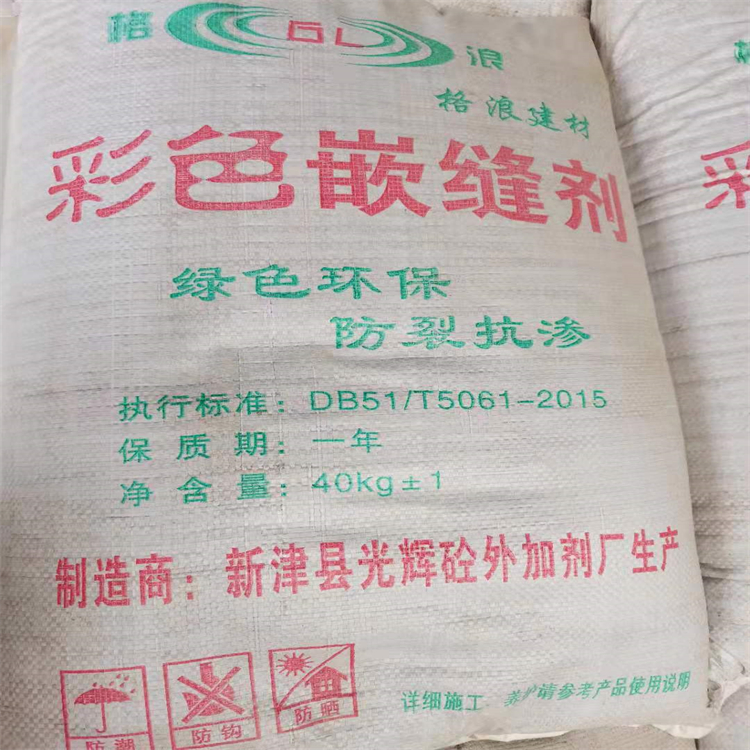 格 GL 浪
格浪建材
彩色嵌缝剂
绿色环保
防裂抗渗
执行标准：DB51/T5061-2015
保质期：一年
净含量：40kg±1
制造商：新津县光辉砼外加剂厂生产
防潮 防钩 防晒
详细施工、养护请参考产品使用说明
彩